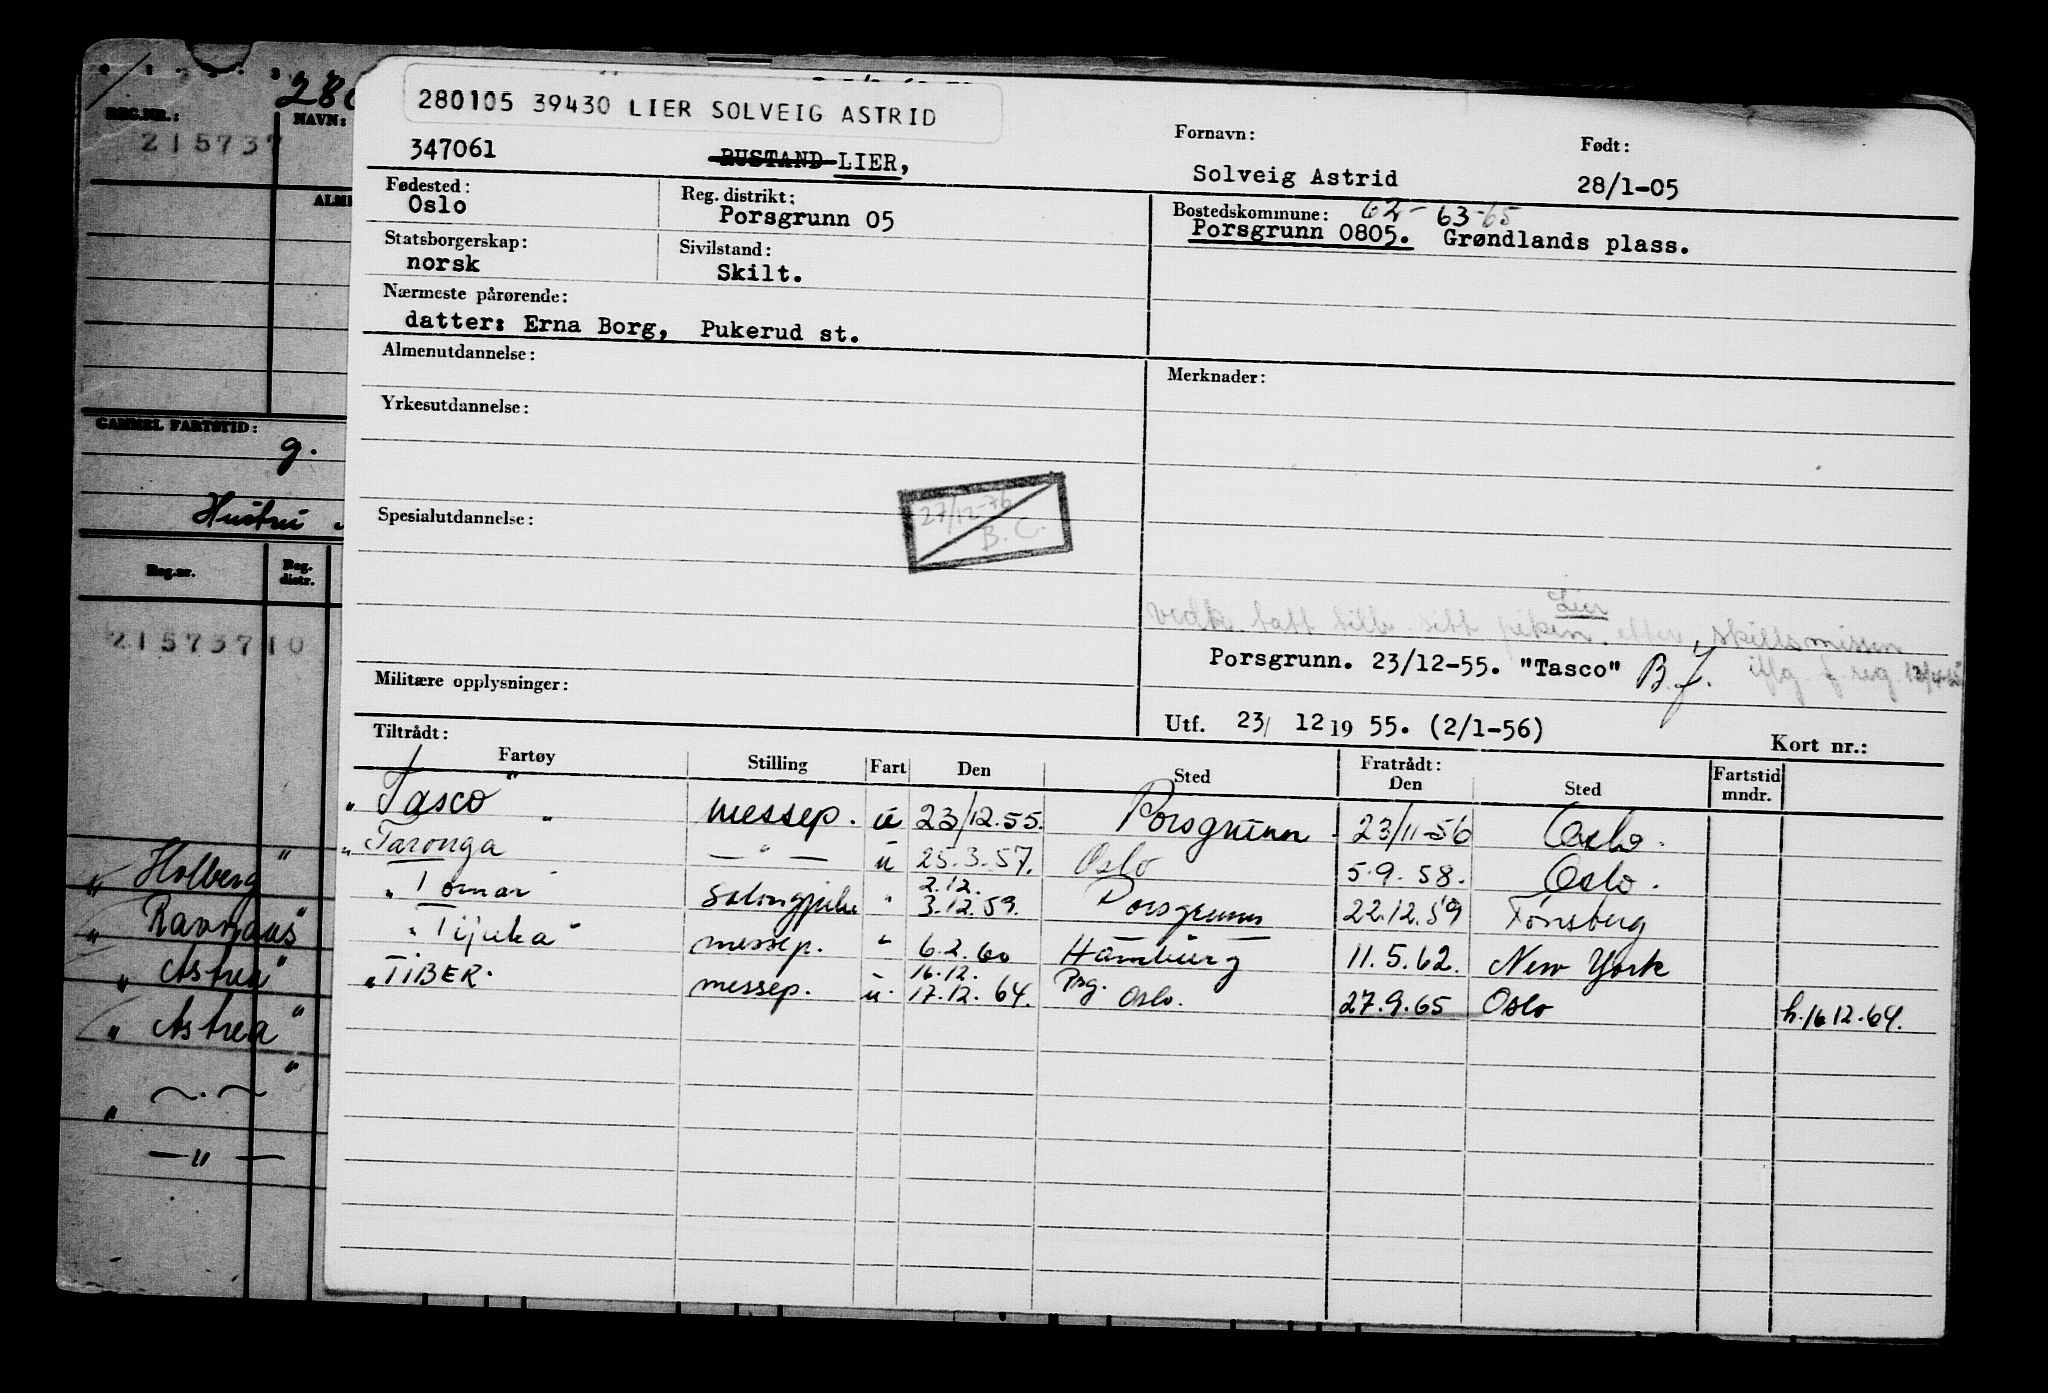 280105 39430 LIER SOLVEIG ASTRID
347061 RUSTAND LIER,
Fornavn: Født:
Solveig Astrid 28/1-05
Fødested: Reg. distrikt: Bostedskommune: 62- 63-65
Oslo Porsgrunn 05 Porsgrunn 0805. Grøndlands plass.
Statsborgerskap: Sivilstand:
norsk Skilt.
Nærmeste pårørende:
datter: Erna Borg, Pukerud st.
Almenutdannelse: Merknader:
Yrkesutdannelse:
27/12-76
B. C.
Spesialutdannelse:
Lier
vedk. tatt tilb. sitt piken. etter skillsmissen
iflg. f. reg.
Porsgrunn. 23/12-55. "Tasco" B.J.
Militære opplysninger:
Utf. 23/ 12 19 55. (2/1-56) Kort nr.:
Tiltrådt: Fratrådt:
Fartøy Stilling Fart Den Sted Den Sted Fartstid mndr.
"Tasco" messep. u 23/12.55. Porsgrunn 23/11-56 Oslo.
"Taronga" — " — u 25.3.57. Oslo 5.9.58. Oslo.
2.12.
"Tomar" salongpike " 3.12.59. Porsgrunn 22.12.59 Tønsberg
"Tijuka" messep. " 6.2.60 Hamburg 11.5.62. New York
16.12. Prg.
"TIBER. messep. u. 17.12.64. Oslo. 27.9.65 Oslo h.16 12.64.
280
REG.NR.: NAVN:
215737
ALME
GAMMEL FARTSTID:
g.
Hustru
Reg.nr. Reg. distr.
21573710
"Holberg"
"Ravnaas"
"Astrea"
"Astrea"
" ~.~ "
—"—